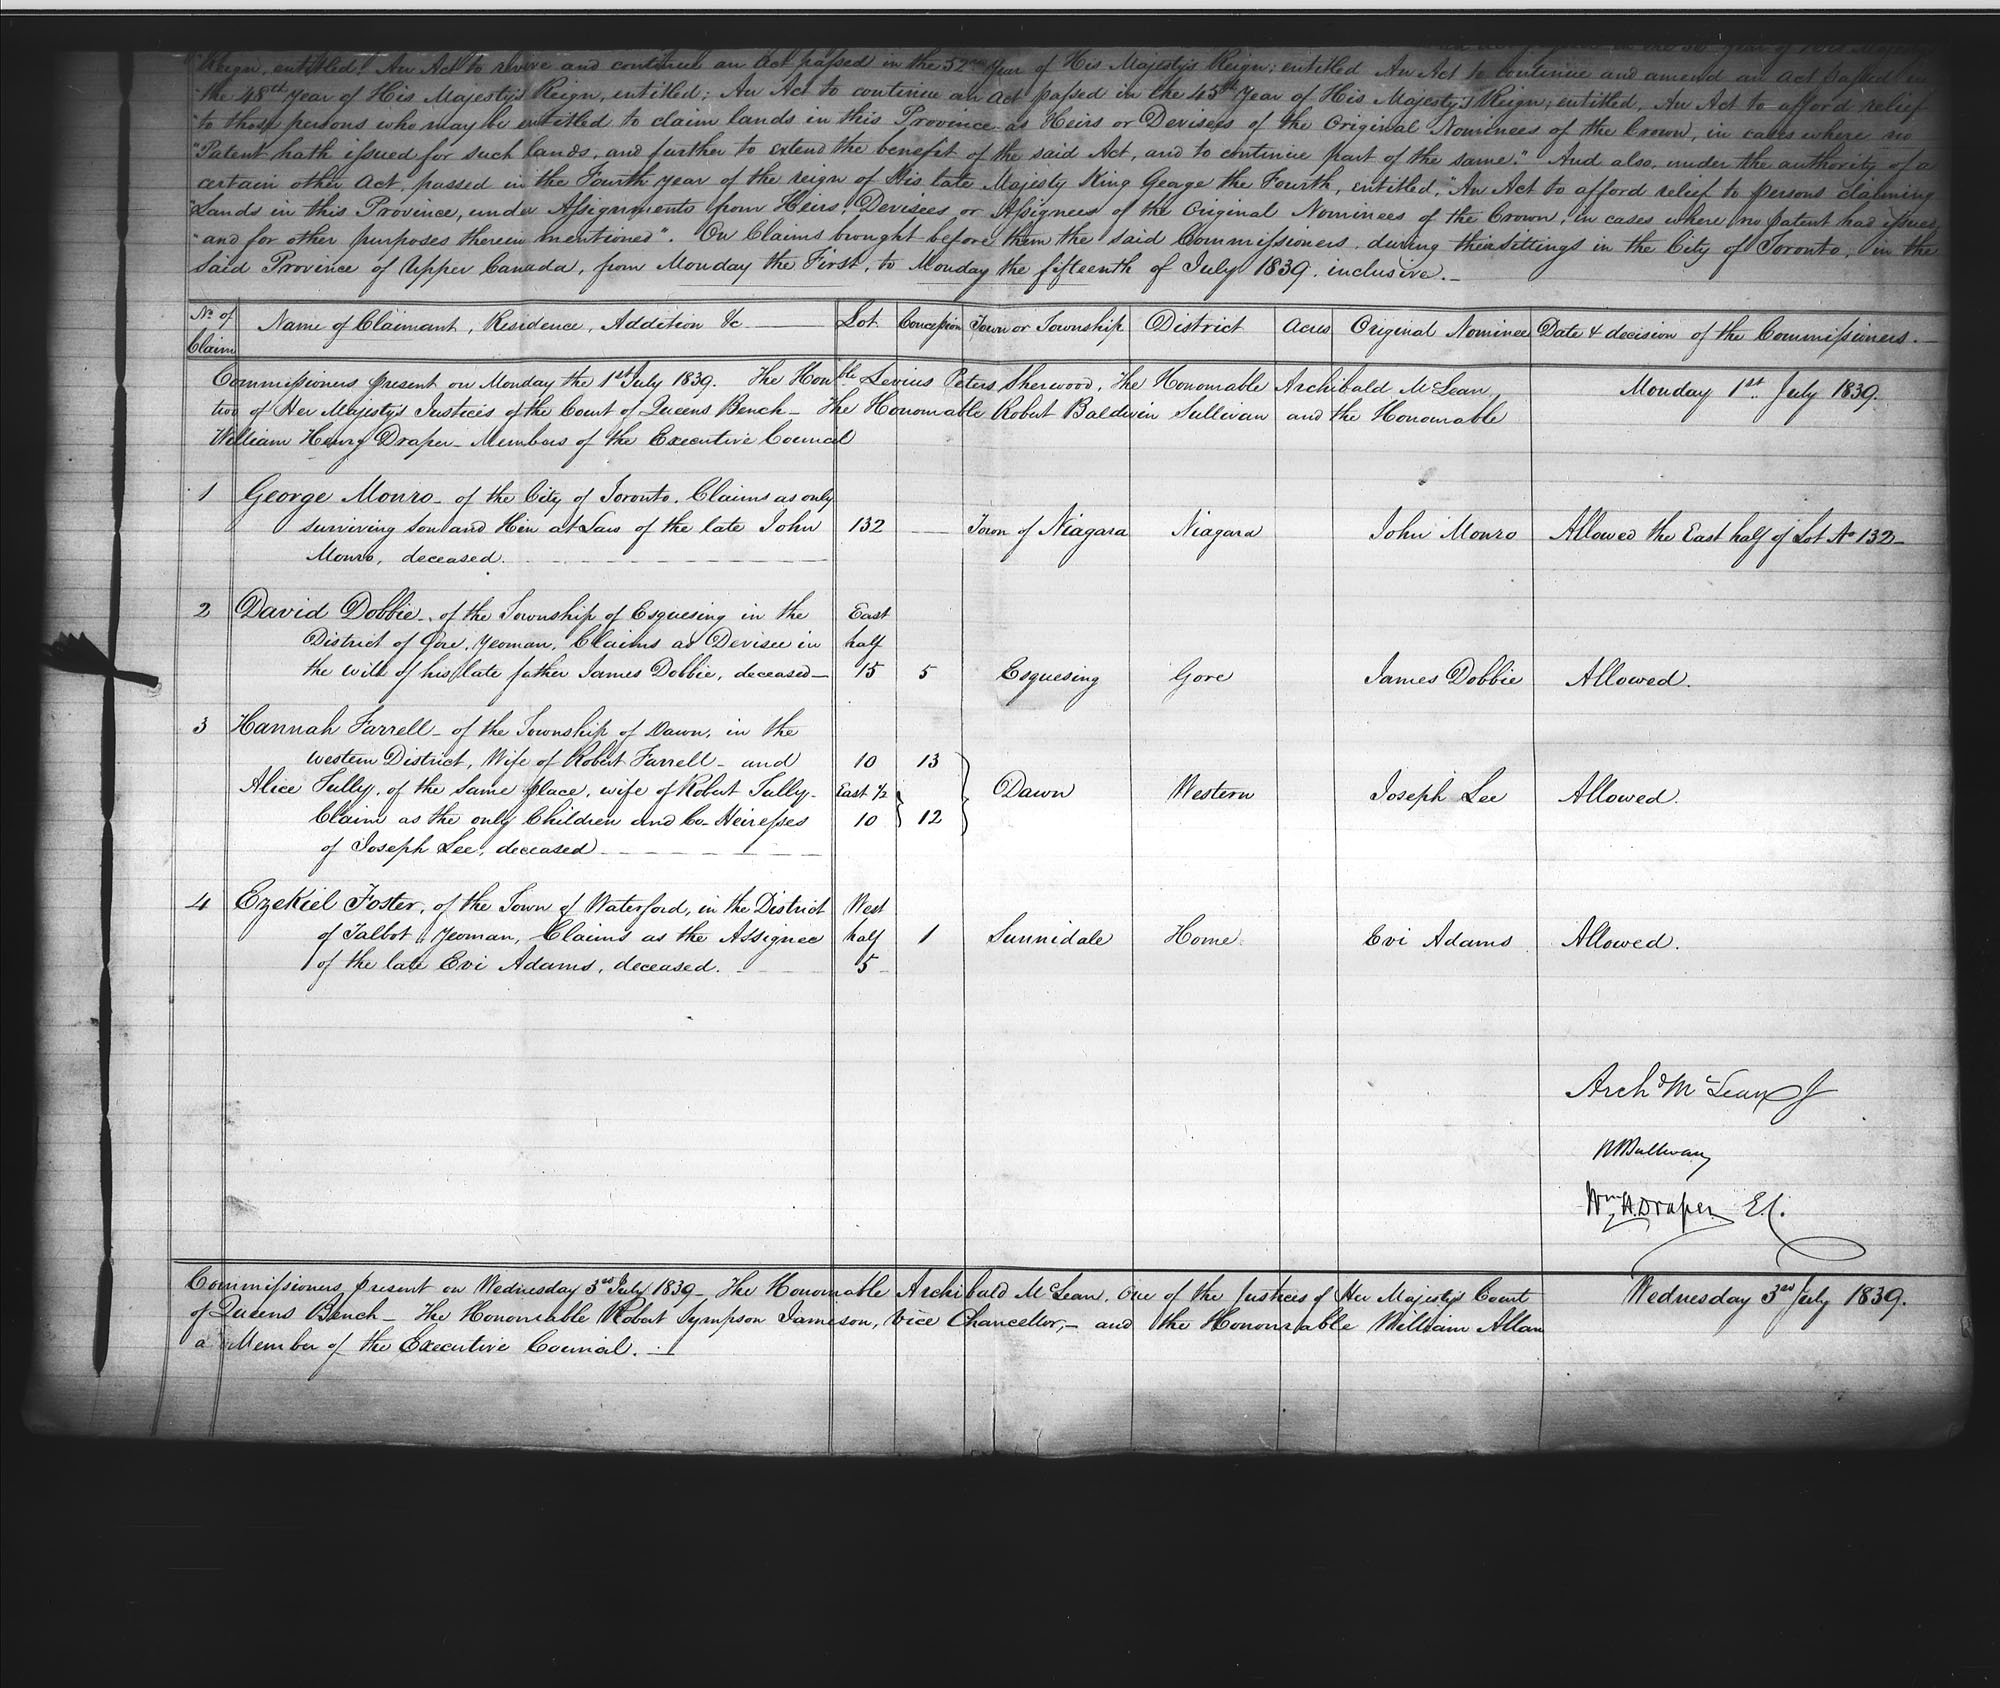 in the 56th year of His Majesty's
"Reign, entitled: An Act to revive and continue an Act passed in the 52nd Year of His Majesty's Reign; entitled An Act to continue and amend an Act passed in
"the 48th year of His Majesty's Reign, entitled; An Act to continue an Act passed in the 45th Year of His Majesty's Reign; entitled, An Act to afford relief
"to those persons who may be entitled to claim lands in this Province as Heirs or Devisees of the Original Nominees of the Crown, in cases where no
"Patent hath issued for such lands, and further to extend the benefit of the said Act, and to continue part of the same." And also, under the authority of a
certain other Act, passed in the Fourth year of the reign of His late Majesty King George the Fourth, entitled, "An Act to afford relief to persons claiming
"Lands in this Province, under Assignments from Heirs, Devisees or Assignees of the Original Nominees of the Crown, in cases where no Patent had issued,
"and for other purposes therein mentioned". On Claims brought before them the said Commissioners during their sittings in the City of Toronto, in the
said Province of Upper Canada, from Monday the First, to Monday the fifteenth of July 1839. inclusive.—
No. of Claim Name of Claimant, Residence, Addition &c Lot Concession Town or Township District Acres Original Nominee Date & decision of the Commissioners.—
Commissioners present on Monday the 1st July 1839. The Honble Levius Peters Sherwood, The Honourable Archibald McLean, Monday 1st July 1839.
two of Her Majesty's Justices of the Court of Queens Bench— The Honourable Robert Baldwin Sullivan and the Honourable
William Henry Draper— Members of the Executive Council
1 George Monro— of the City of Toronto. Claims as only
surviving son and Heir at Law of the late John 132 — Town of Niagara Niagara John Monro Allowed the East half of Lot No 132—
Monro, deceased.
2 David Dobbie—, of the Township of Esquesing in the East
District of Gore, Yeoman, Claims as Devisee in half
the will of his late father James Dobbie, deceased— 15 5 Esquesing Gore James Dobbie Allowed.
3 Hannah Farrell— of the Township of Dawn, in the
Western District, Wife of Robert Farrell— and 10 13
Alice Tully, of the same place, wife of Robert Tully— East 1/2 Dawn Western Joseph Lee Allowed.
Claim as the only Children and Co-Heiresses 10 12
of Joseph Lee, deceased
4 Ezekiel Foster, of the Town of Waterford, in the District West
of Talbot, Yeoman, Claims as the Assignee half 1 Sunnidale Home Evi Adams Allowed.
of the late Evi Adams, deceased. 5
Archd McLean J
RBSullivan
Wm H. Draper E.C.
Commissioners present on Wednesday 3rd July 1839— The Honourable Archibald McLean, One of the Justices of Her Majesty's Court Wednesday 3rd July 1839.
of Queens Bench— The Honourable Robert Sympson Jameson, Vice Chancellor,— and the Honourable William Allan
a Member of the Executive Council.—